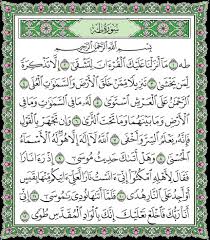 سُورَةُ طه
بِسْمِ ٱللَّهِ ٱلرَّحْمَٰنِ ٱلرَّحِيمِ
طه ١ مَآ أَنزَلْنَا عَلَيْكَ ٱلْقُرْءَانَ لِتَشْقَىٰٓ ٢ إِلَّا تَذْكِرَةً
لِّمَن يَخْشَىٰ ٣ تَنزِيلًا مِّمَّنْ خَلَقَ ٱلْأَرْضَ وَٱلسَّمَٰوَٰتِ ٱلْعُلَى ٤
ٱلرَّحْمَٰنُ عَلَى ٱلْعَرْشِ ٱسْتَوَىٰ ٥ لَهُۥ مَا فِى ٱلسَّمَٰوَٰتِ وَمَا فِى
ٱلْأَرْضِ وَمَا بَيْنَهُمَا وَمَا تَحْتَ ٱلثَّرَىٰ ٦ وَإِن تَجْهَرْ بِٱلْقَوْلِ
فَإِنَّهُۥ يَعْلَمُ ٱلسِّرَّ وَأَخْفَى ٧ ٱللَّهُ لَآ إِلَٰهَ إِلَّا هُوَ لَهُ ٱلْأَسْمَآءُ
ٱلْحُسْنَىٰ ٨ وَهَلْ أَتَىٰكَ حَدِيثُ مُوسَىٰٓ ٩ إِذْ رَءَا نَارًا
فَقَالَ لِأَهْلِهِ ٱمْكُثُوٓا۟ إِنِّىٓ ءَانَسْتُ نَارًا لَّعَلِّىٓ ءَاتِيكُم مِّنْهَا بِقَبَسٍ
أَوْ أَجِدُ عَلَى ٱلنَّارِ هُدًى ١٠ فَلَمَّآ أَتَىٰهَا نُودِىَ يَٰمُوسَىٰٓ ١١
إِنِّىٓ أَنَا۠ رَبُّكَ فَٱخْلَعْ نَعْلَيْكَ إِنَّكَ بِٱلْوَادِ ٱلْمُقَدَّسِ طُوًى ١٢